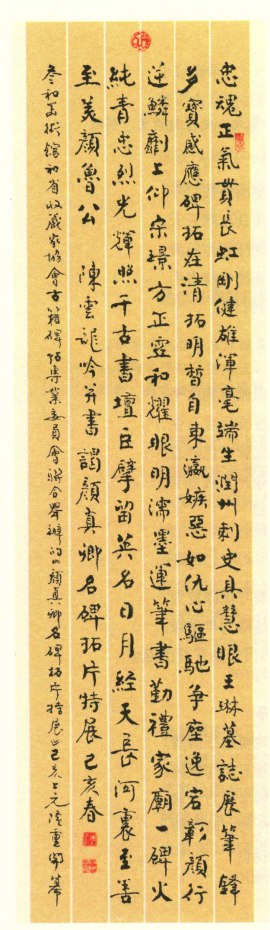 忠魂正氣貫長虹剛健雄渾毫端生潤州刺史具慧眼王琳墓誌展筆鋒
多寶感應碑拓在清拓明晳自東瀛嫉惡如仇心驅馳爭座逸宕勒顏行
逆鱗劘上仰宋璟方正雯和耀眼明濡墨運筆書勤禮家廟一碑火
純青忠烈光輝照千古書壇巨擘留英名日月經天長河裏至善
至美顏魯公 陳雲龍吟并書謁顏真卿名碑拓片特展己亥春
叁和美術館和省收藏家協會古籍碑帖專業委員會聯合舉辦的顏真卿名碑拓片特展己亥上元隆重開幕